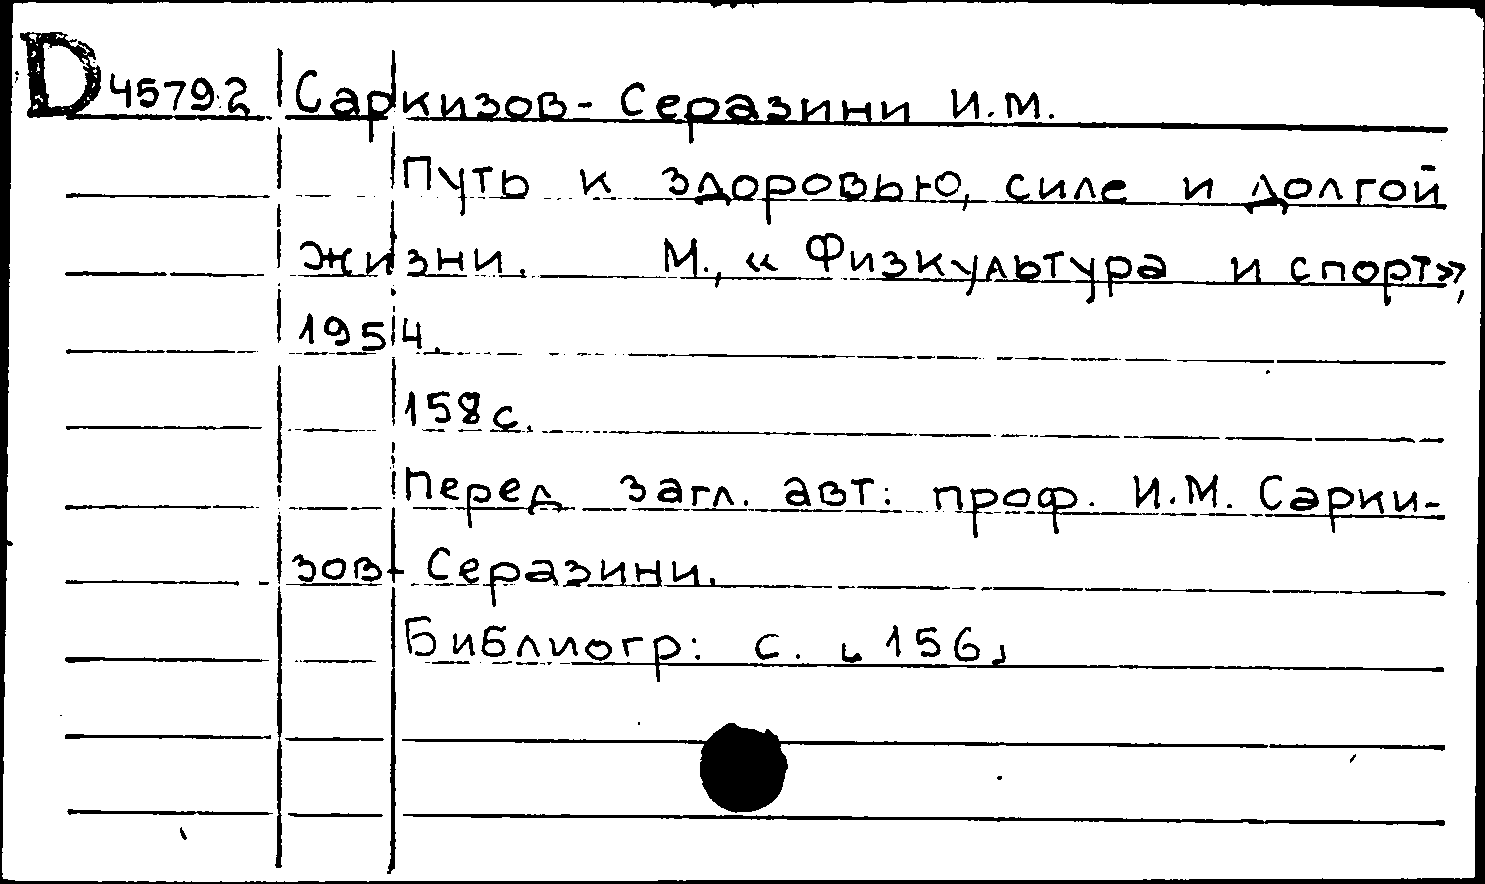 D 45792 Саркизов-Серазини И.М.
Путь к здоровью, силе и долгой
жизни. М., «Физкультура и спорт»,
1954.
158с.
Перед загл. авт: проф. И.М. Сарки-
зов-Серазини.
Библиогр: с. ⌞156⌟